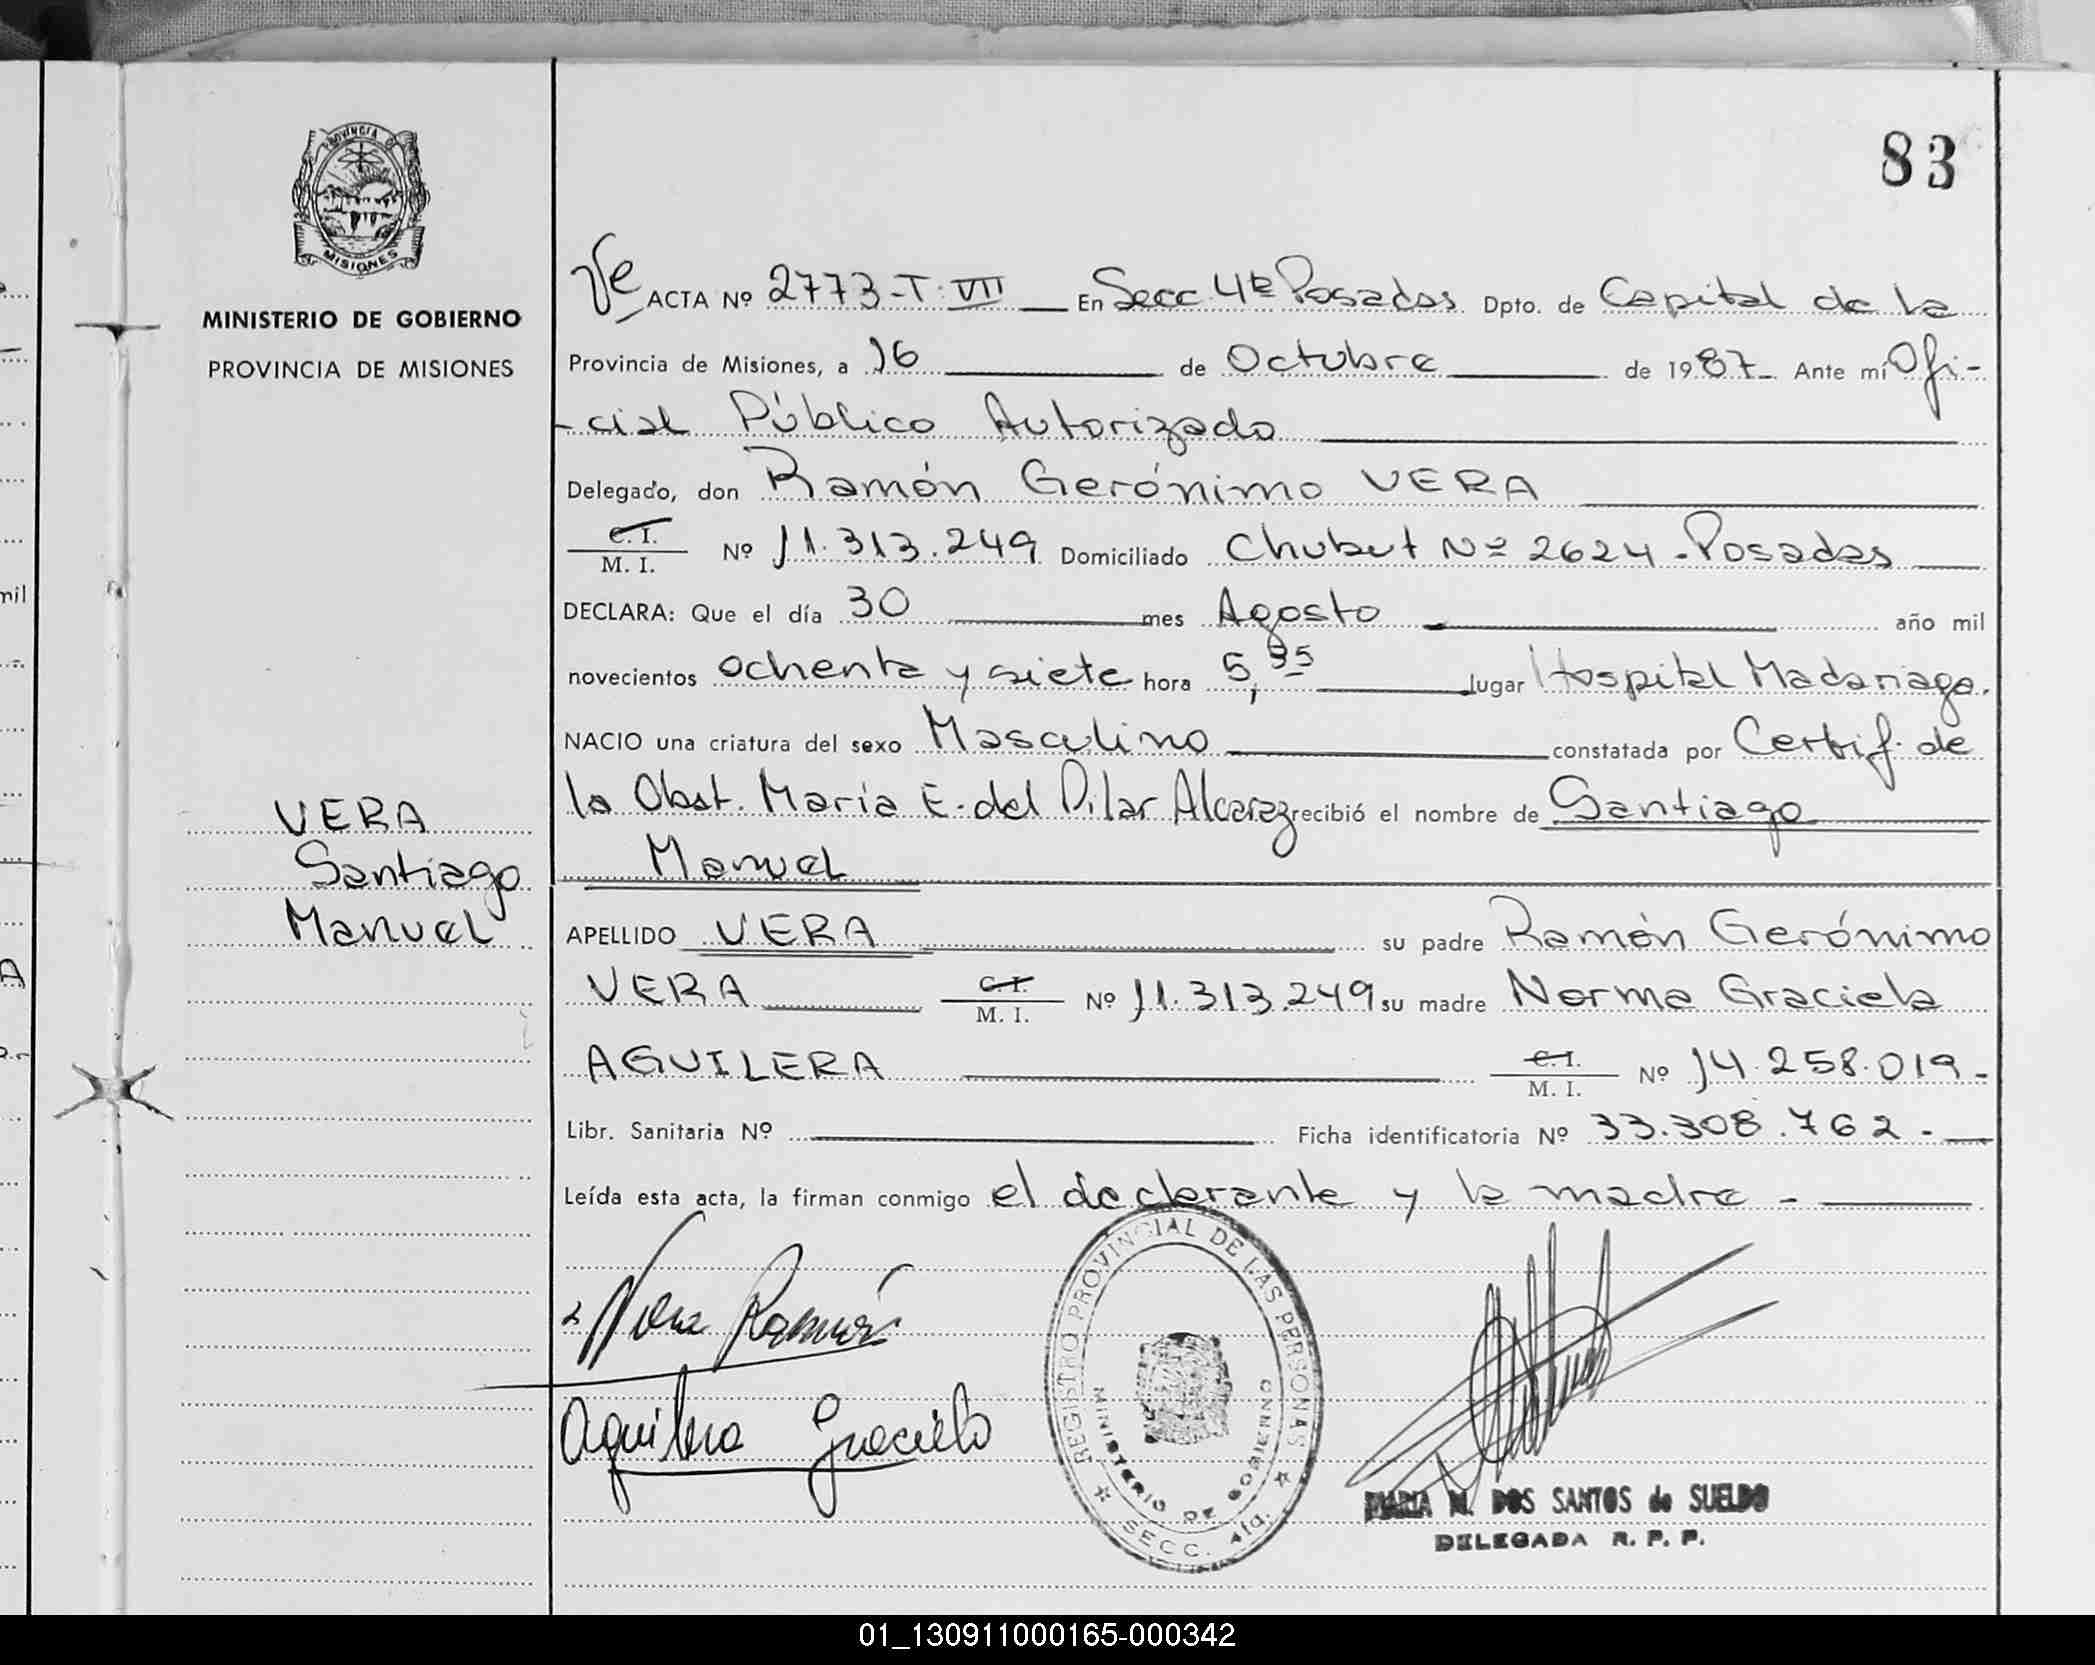 83
PROVINCIA DE
MISIONES
MINISTERIO DE GOBIERNO
PROVINCIA DE MISIONES
ACTA Nº 2773-T-VII En Secc. 4ta Posadas Dpto. de Capital de la
Provincia de Misiones, a 16 de Octubre de 1987. Ante mí Ofi-
-cial Público Autorizado
Delegado, don Ramón Gerónimo VERA
C. I.
M. I. Nº 11.313.249 Domiciliado Chubut Nº 2624 - Posadas
DECLARA: Que el día 30 mes Agosto año mil
novecientos ochenta y siete hora 5, lugar Hospital Madariaga.
NACIO una criatura del sexo Masculino constatada por Certif. de
la Obst. María E. del Pilar Alcaraz recibió el nombre de Santiago
Manuel
VERA
Santiago
Manuel
APELLIDO VERA su padre Ramón Gerónimo
VERA C. I.
M. I. Nº 11.313.249 su madre Norma Graciela
AGUILERA C. I.
M. I. Nº 14.258.019-
Libr. Sanitaria Nº Ficha identificatoria Nº 33.308.762.-
Leída esta acta, la firman conmigo el declarante y la madre -
Vera Ramón
Aguilera Graciela
REGISTRO PROVINCIAL DE LAS PERSONAS
MINISTERIO DE GOBIERNO
SECC. 4ta.
MARIA M. DOS SANTOS de SUELDO
DELEGADA R. P. P.
01_130911000165-000342